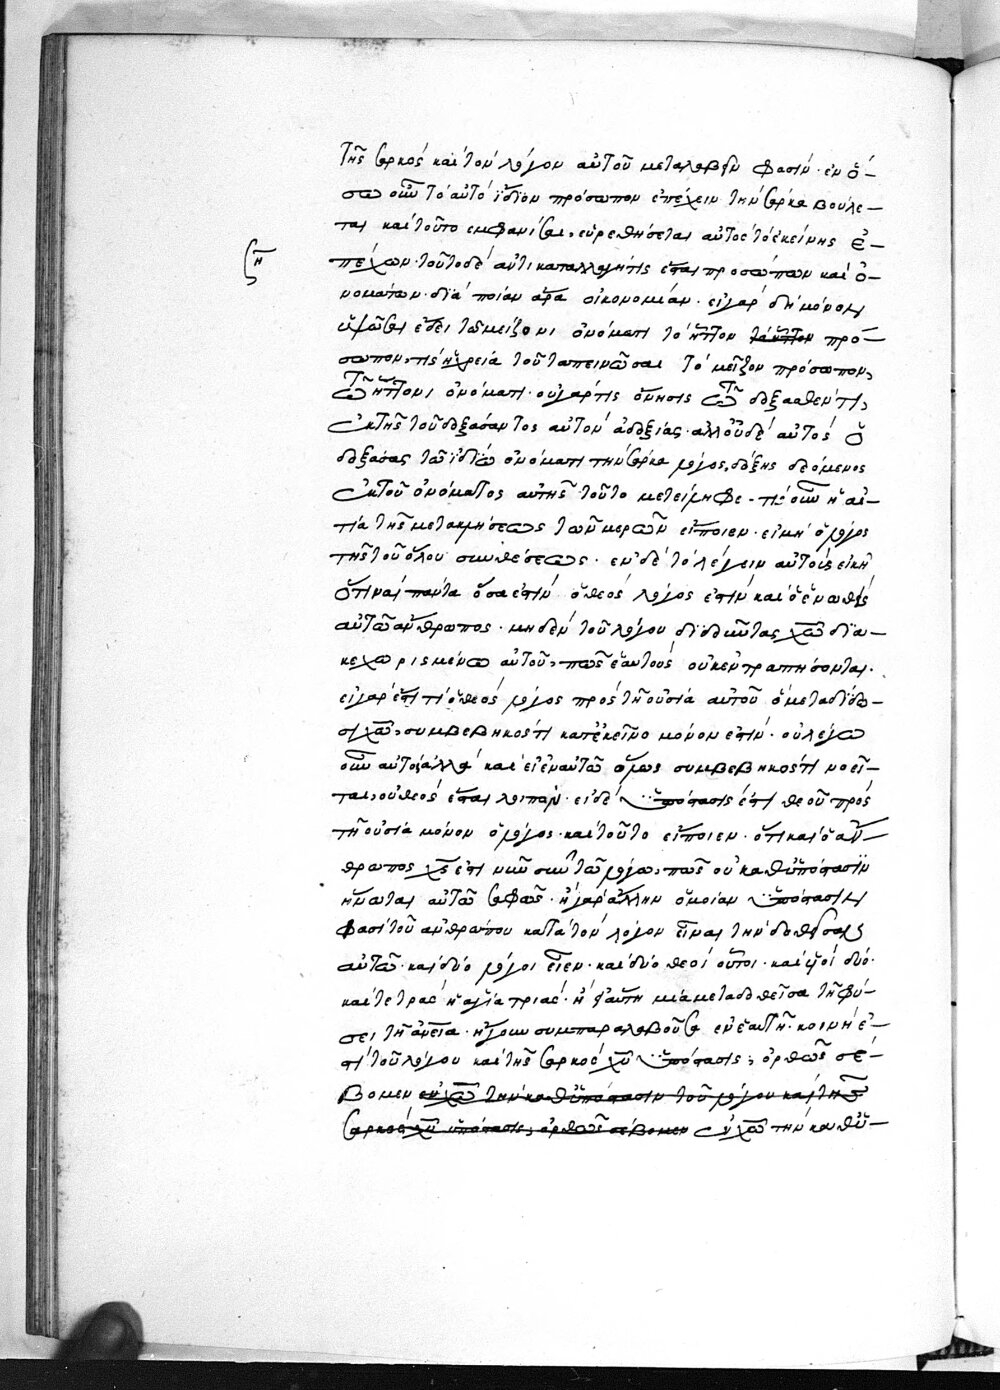 τῆς σαρκὸς καὶ τὸν λόγον αὐτοῦ μεταλαβεῖν φασίν· ἐν ὅ-
σω οὖν τὸ αὐτὸ ἴδιον πρόσωπον ἐπέχειν τὴν σάρκα βούλε-
ται καὶ τοῦτο ἐμφανίσαι, εὑρεθήσεται αὐτὸς τὸ ἐκείνης ἐ-
πέχων· τοῦτο δὲ ἀντικαταλλαγή τίς ἐσται προσώπων καὶ ὀ-
νομάτων· διὰ ποίαν ἄρα οἰκονομίαν· εἰ γὰρ δὴ μόνον
ὑψῶσαι ἔδει τῶ μείζονι ὀνόματι τὸ ἧττον πρό-
σωπον, τίς ἡ χρεία τοῦ ταπεινῶσαι τὸ μεῖζον πρόσωπον,
τῶ ἥττονι ὀνόματι· οὐ γάρ τις ὄνησις τῶ δοξασθέντι,
ἐκ τῆς τοῦ δοξάσαντος αὐτὸν ἀδοξίας· ἀλλ' οὐδὲ αὐτὸς ὁ
δοξάσας τῶ ἰδίω ὀνόματι τὴν σάρκα λόγος, δόξης δεόμενος
ἐκ τοῦ ὀνόματος αὐτῆς τοῦτο μετείληφε· τίς οὖν ἡ αἰ-
τία τῆς μετακλήσεως τῶν μερῶν εἴποιεν· εἰ μὴ ὁ λόγος
τῆς τοῦ ὅλου συνθέσεως· ἐν δὲ τὸ λέγειν αὐτοὺς εἰκῆ
ὅτι ναὶ πάντα ὅσα ἐστὶν ὁ θεὸς λόγος ἐστὶν καὶ ὁ ἑνωθεὶς
αὐτῶ ἄνθρωπος· μηδὲν τοῦ λόγου διδοῦντας χῶ δια-
κεχωρισμένω αὐτοῦ, πῶς ἑαυτοὺς οὐκ ἐντραπήσονται·
εἰ γὰρ ἔστι τι ὁ θεὸς λόγος πρὸς τῆ οὐσία αὐτοῦ ὃ μεταδίδω-
σι χῶ, συμβεβηκός τι κατ' ἐκεῖνο μόνον ἐστίν· οὐ λέγω
οὖν αὐτὸς ἀλλὰ καὶ εἰ ἐν αὐτῶ ὅμως συμβεβηκός τι νοεῖ-
ται, οὐ θεὸς ἔσται λοιπόν· εἰ δὲ ὑπόστασις ἐστὶ θεοῦ πρὸς
τῆ οὐσία μόνον ὁ λόγος· καὶ τοῦτο εἴποιεν· ὅτι καὶ ὁ ἄν-
θρωπος χς ἐστι νῦν σὺν τῶ λόγω, πῶς οὐ καθ' ὑπόστασιν
ἥνωται αὐτῶ σαφῶς· ἢ γὰρ ἄλλην ὁμοίαν ὑπόστασιν
φασὶ τοῦ ἀνθρώπου κατὰ τὸν λόγον εἶναι τὴν δοθεῖσαν
αὐτῶ· καὶ δύο λόγοι εἶεν· καὶ δύο θεοὶ οὗτοι· καὶ υἱοὶ δύο·
καὶ τετρὰς ἡ ἁγία τριάς· ἢ αὕτη μία μεταδοθεῖσα τῆ φύ-
σει τῆ ἀνεία· ἤγουν συμπαραλαβοῦσα ἐν ἑαυτῆ· κοινὴ ἐ-
στὶ τοῦ λόγου καὶ τῆς σαρκὸς χυ ὑπόστασις, ὀρθῶς σέ-
βομεν ἐν χῶ τὴν καθ' ὑπόστασιν τοῦ λόγου καὶ τῆς
σαρκὸς χυ ὑπόστασις, ὀρθῶς σέβομεν ἐν χῶ τὴν καθ' ὑ-